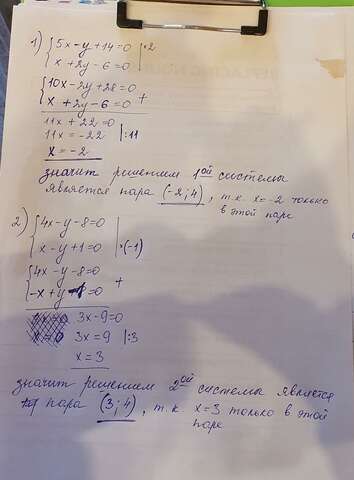 1) { 5x-y+14=0 |·2
{ x+2y-6=0
{ 10x-2y+28=0
{ x+2y-6=0 +
11x+22=0
11x=-22 |:11
x=-2
значит решением 1ой системы
является пара (-2;4), т.к. x=-2 только
в этой паре
2) { 4x-y-8=0
{ x-y+1=0 |·(-1)
{ 4x-y-8=0
{ -x+y-1=0 +
3x-9=0
3x=9 |:3
x=3
значит решением 2ой системы является
пара (3;4), т.к. x=3 только в этой
паре